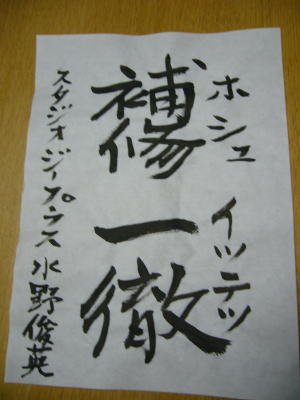 ホシュ イッテツ
補修一徹
スタジオジープラス 水野俊英